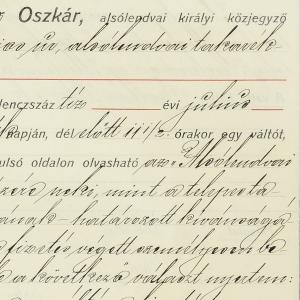 Oszkár, alsólendvai királyi közjegyző
úr, alsólendvai takarék-
lencszáz tíz évi július
napján, dél előtt 11 1/2 órakor, egy váltót,
ulsó oldalon olvasható az "Alsólendvai
neki, mint a telepesta-
határozott kívánságá
fizetés végett személyesen be
a következő választ nyertem: